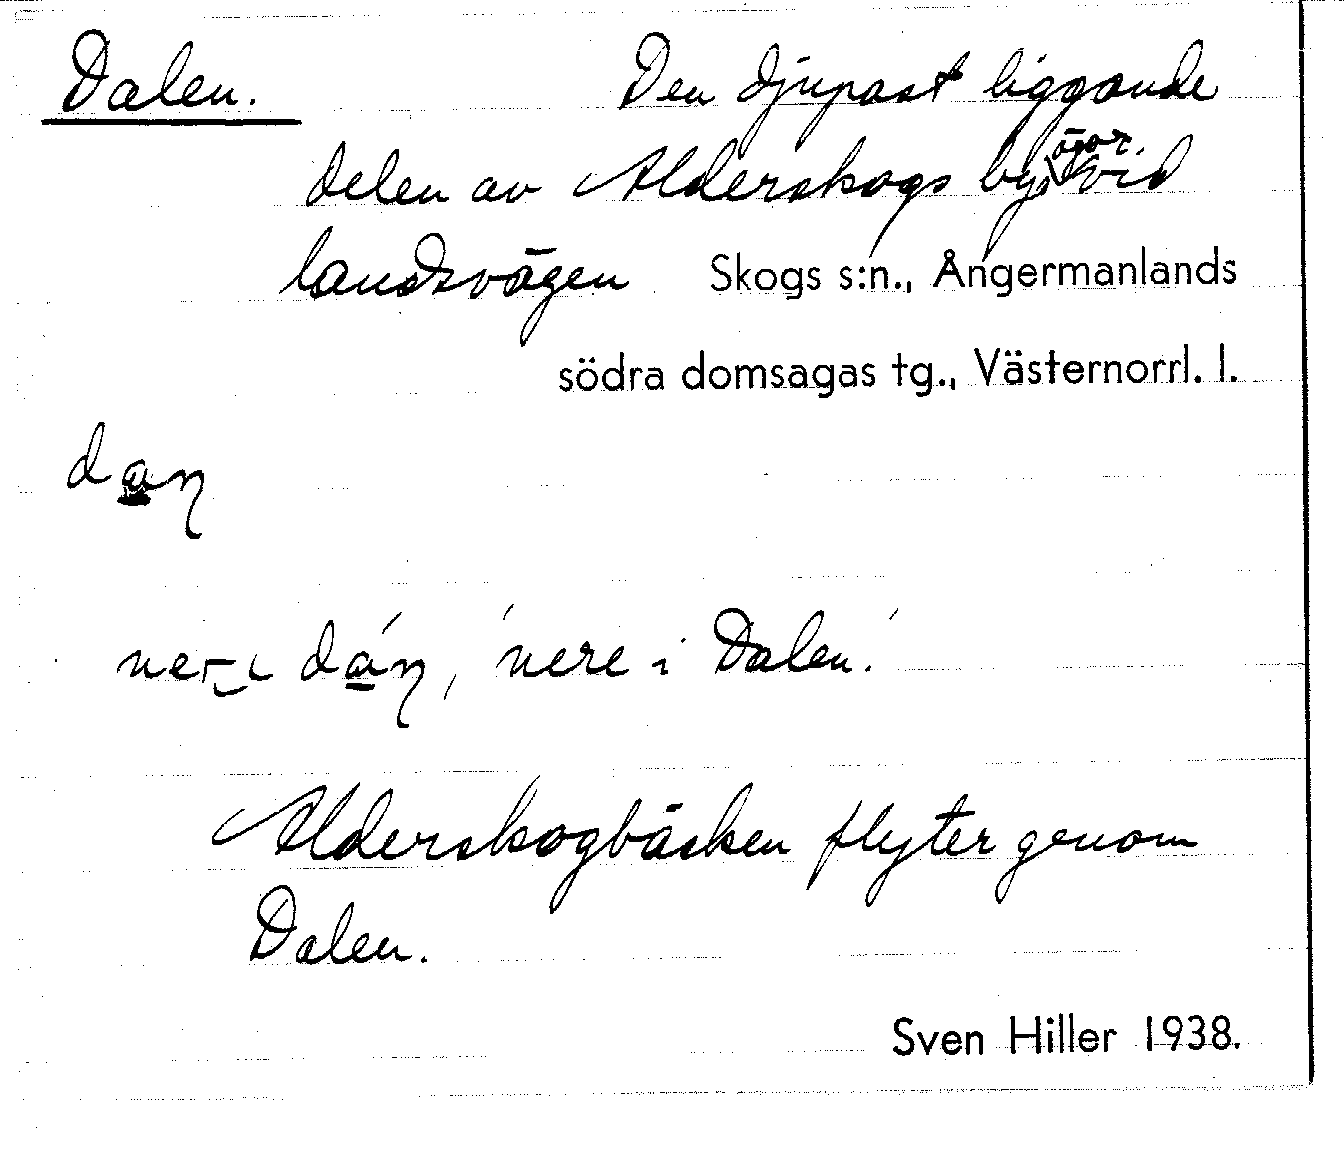 Dalen. Den djupast liggande
delen av Alderskogs by,s ägor. vid
landsvägen Skogs s:n., Ångermanlands
södra domsagas tg., Västernorrl. l.
da̲ɳ
ner_ɩ dá̲ɳ, 'nere i Dalen.'
Alderskogbäcken flyter genom
Dalen.
Sven Hiller 1938.